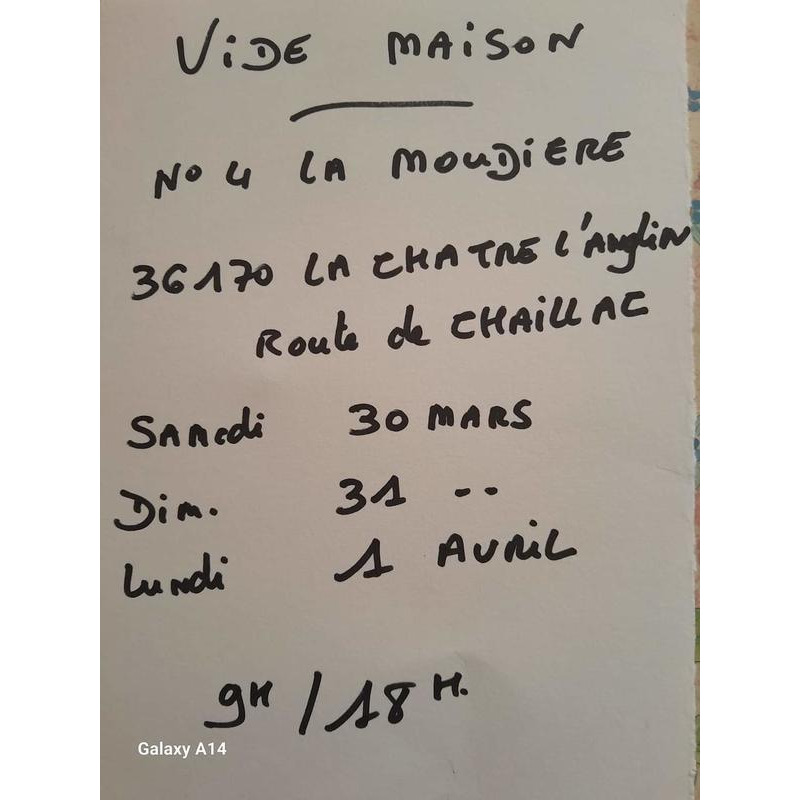 VIDE MAISON
No 4 LA MOUDIERE
36170 LA CHATRE L'Anglin
Route de CHAILLAC
SAMEDI 30 MARS
Dim. 31 --
Lundi 1 AVRIL
9H / 18 H.
Galaxy A14